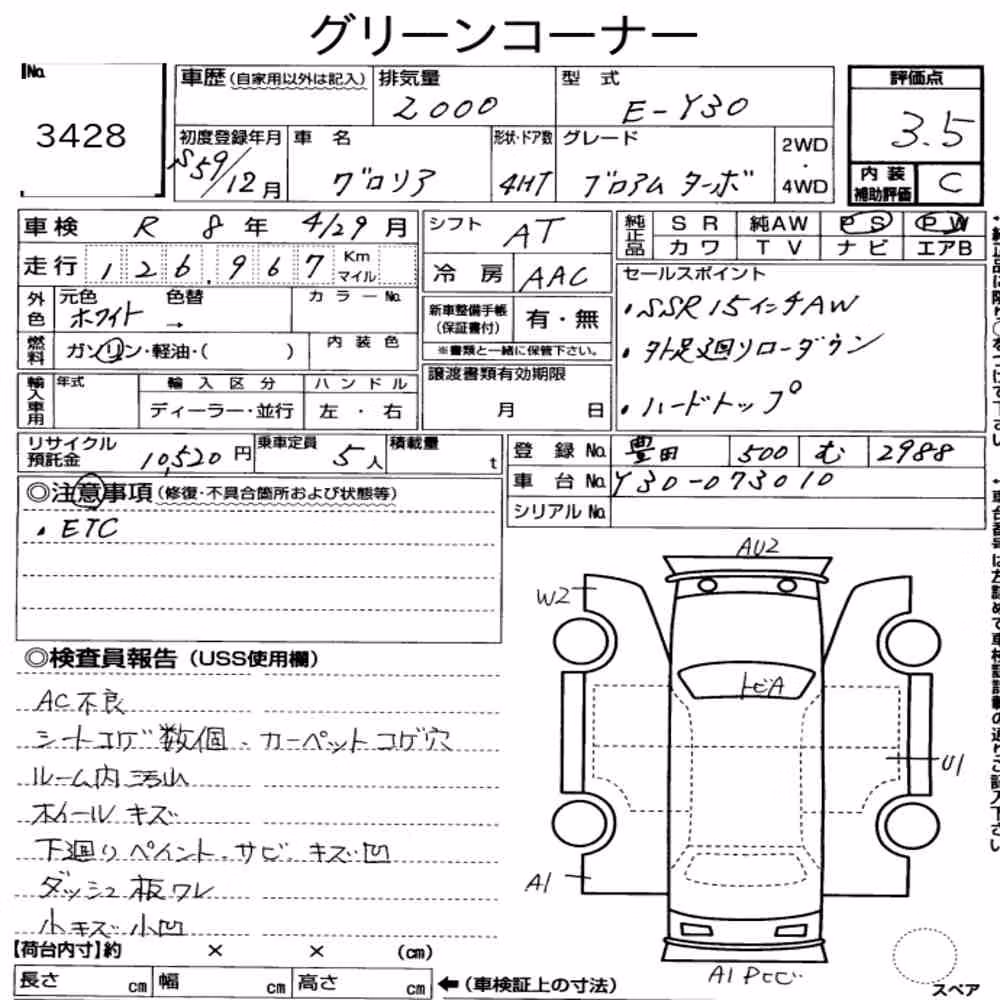 グリーンコーナー
No.
3428
車歴(自家用以外は記入)
排気量
2000
型 式
E-Y30
評価点
3.5
初度登録年月
S59/12月
車 名
グロリア
形状・ドア数
4HT
グレード
ブロアム ターボ
2WD
・
4WD
内装
補助評価
C
車検 R 8 年 4/29 月
走行 126,967 Km
マイル
外色
元色
ホワイト
色替
→
カラーNo.
燃料
ガソリン・軽油・( )
内装色
輸入車用
年式
輸入区分
ディーラー・並行
ハンドル
左・右
シフト AT
冷 房 AAC
新車整備手帳
(保証書付)
有・無
※書類と一緒に保管下さい。
譲渡書類有効期限
月 日
純正品
SR 純AW PS PW
カワ TV ナビ エアB
セールスポイント
・SSR 15インチAW
・外足廻りローダウン
・ハードトップ
リサイクル
預託金
10,520 円
乗車定員
5 人
積載量
t
登 録 No. 豊田 500 む 2988
車 台 No. Y30-073010
シリアル No.
◎注意事項(修復・不具合箇所および状態等)
・ETC
◎検査員報告(USS使用欄)
AC不良
シートコゲ数個、カーペットコゲ穴
ルーム内汚れ
ホイールキズ
下廻りペイント、サビ、キズ凹
ダッシュ板ワレ
小キズ小凹
【荷台内寸】約 × × (cm)
長さ cm 幅 cm 高さ cm
←(車検証上の寸法)
AU2
W2
トビA
U1
A1
A1 Pとび
スペア